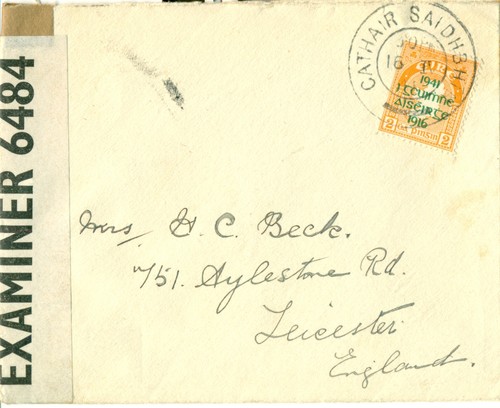 EXAMINER 6484
CATHAIR SAIDHBH
16
1941
I gCUIMNE
AISÉIRGE
1916
2 PINGIN 2
Mrs H. C. Beck.
751. Aylestone Rd.
Leicester
England.